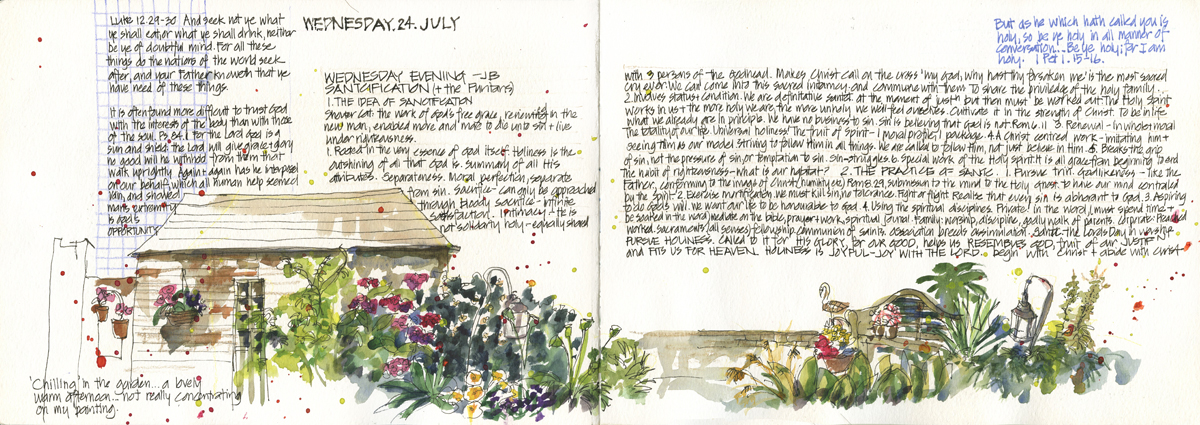 Luke 12.29-30 And seek not ye what
ye shall eat, or what ye shall drink, neither
be ye of doubtful mind. For all these
things do the nations of the world seek
after, and your Father knoweth that ye
have need of these things.
It is often found more difficult to trust God
with the interests of the body than with those
of the soul. Ps.84.1. For the Lord God is a
sun and shield: the Lord will give grace & glory
no good will he withhold from them that
walk uprightly. Again & again has he interposed
on our behalf, which all human help seemed
vain, and showed
man's extremity
is God's
OPPORTUNITY
WEDNESDAY. 24. JULY
WEDNESDAY EVENING - JB
SANCTIFICATION (+ the Puritans)
1. THE IDEA OF SANCTIFICATION
Shorter Cat: the work of God's free grace, renewing in the
new man, enabled more and more to die unto sin + live
under righteousness.
1. Rooted in the very essence of God itself. Holiness is the
outshining of all that God is. Summary of all His
attributes. Separateness. Moral perfection, separate
from sin. Sacrifice - can only be approached
through bloody sacrifice - infinite
satisfaction. Intimacy - He is
not solidarity holy - equally shared
But as he which hath called you is
holy, so be ye holy in all manner of
conversation... Be ye holy; for I am
holy. 1 Pet 1. 15-16.
with 3 persons of the Godhead. Makes Christ call on the cross 'my God, why hast thy forsaken me' is the most sacred
cry ever. We can come into this sacred intimacy and commune with them. To share the privilege of the holy family.
2. Involves status + condition. We are definitive saints at the moment of but then must be worked out. The Holy Spirit
works in us + the more holy we are, the more unholy we feel ourselves. Cultivate it in the strength of Christ. To be in life
what we already are in principle. We have no business to sin. Sin is believing that God is not. Rom 6.11 3. Renewal - involves moral
The totality of our life. Universal holiness! The fruit of Spirit - 1 moral profile, 1 package. 4. Christ centred work - imitating him +
seeing Him as our model. Striving to follow Him in all things. We are called to follow Him, not just believe in Him. 5. Breaks the grip
of sin, not the pressure of sin, or temptation to sin. Sin-struggles. 6. Special work of the Holy Spirit. It is all grace from beginning to end.
The habit of righteousness - what is our habitat? 2. THE PRACTICE OF SANTC. 1. Pursue trin. Godlikeness - like the
Father, conforming to the image of Christ (humility etc) Rom 8.29, submission to the mind to the Holy Ghost. To have our mind controlled
by the Spirit. 2. Exercise mortification we must kill sin, no tolerance. Fight or flight. Realise that every sin is abhorant to God. 3. Aspiring
to do God's will. We want our life to be honourable to God. 4. Using the spiritual disciplines. Private: In the word, I must spend time +
be soaked in the word, mediate on the bible, prayer + work, spiritual journal. Family: worship, discipline, godly walk of parents. Corporate: Preached
word. Sacraments (all senses) fellowship. Communion of saints. Association breeds assimilation. Sanctif. the Lord's Day in worship
PURSUE HOLINESS. CALLED TO IT FOR HIS GLORY, FOR OUR GOOD, HELPS US RESEMBLES GOD, FRUIT OF OUR JUSTIFN
AND FITS US FOR HEAVEN. HOLINESS IS JOYFUL - JOY WITH THE LORD. begin with Christ + abide with Christ
'Chilling' in the garden... a lovely
warm afternoon... not really concentrating
on my painting.